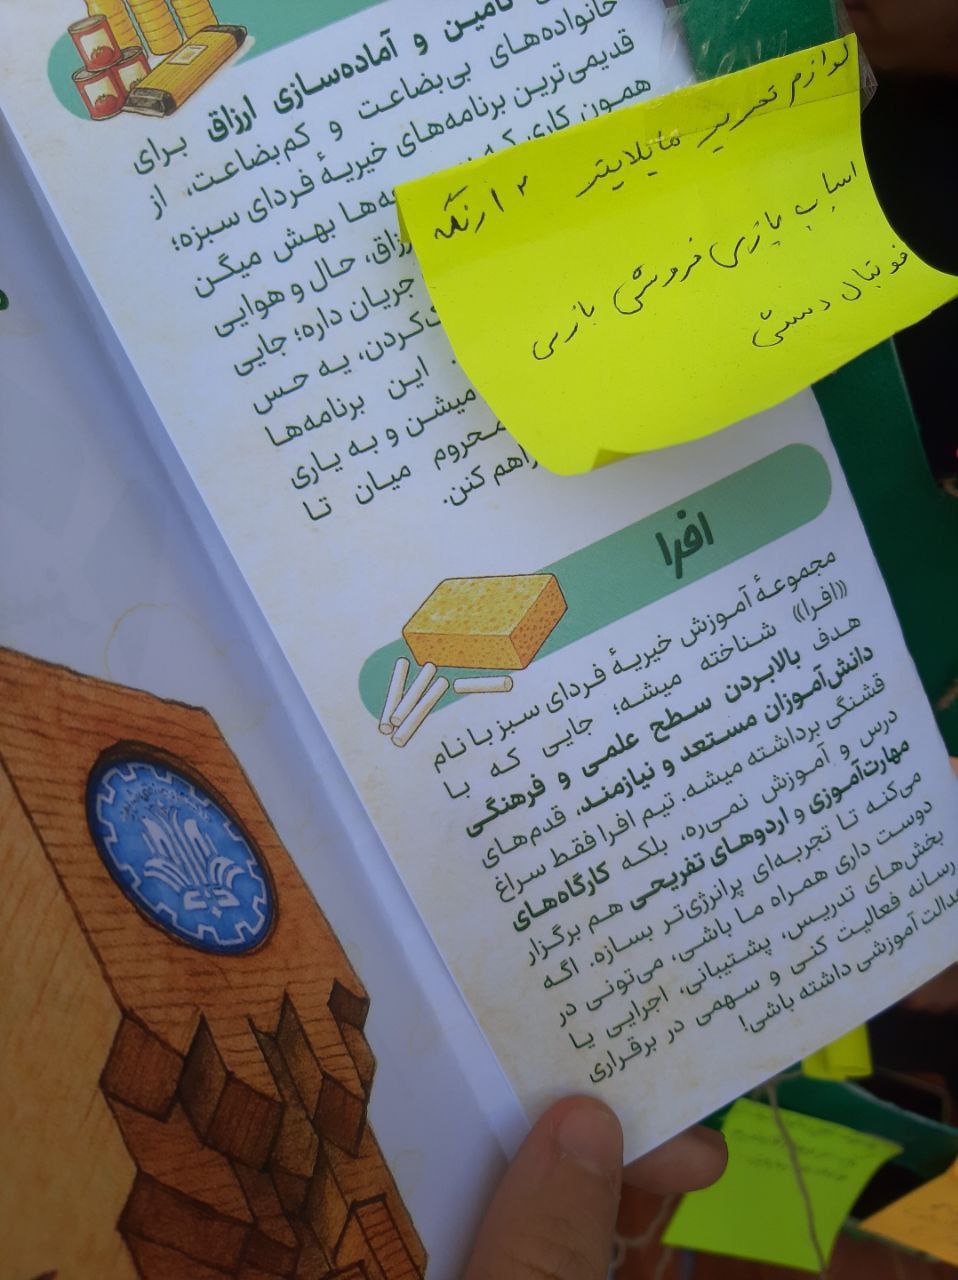 تامین و آماده‌سازی ارزاق برای
خانواده‌های بی‌بضاعت و کم‌بضاعت، از
قدیمی‌ترین برنامه‌های خیریهٔ فردای سبزه؛
همون کاری که
بهش میگن
ارزاق، حال و هوایی
جریان داره؛ جایی
کردن، یه حس
این برنامه‌ها
میشن و به یاری
محروم میان تا
فراهم کنن.
لوازم تحریر هایلایتر ۱۲ رنگه
اسباب بازی فروشی بازی
فوتبال دستی
افرا
مجموعهٔ آموزش خیریهٔ فردای سبز با نام
«افرا» شناخته میشه؛ جایی که با
هدف بالابردن سطح علمی و فرهنگی
دانش‌آموزان مستعد و نیازمند، قدم‌های
قشنگی برداشته میشه. تیم افرا فقط سراغ
درس و آموزش نمی‌ره، بلکه کارگاه‌های
مهارت‌آموزی و اردوهای تفریحی هم برگزار
می‌کنه تا تجربه‌ای پرانرژی‌تر بسازه. اگه
دوست داری همراه ما باشی، می‌تونی در
بخش‌های تدریس، پشتیبانی، اجرایی یا
رسانه فعالیت کنی و سهمی در برقراری
عدالت آموزشی داشته باشی!